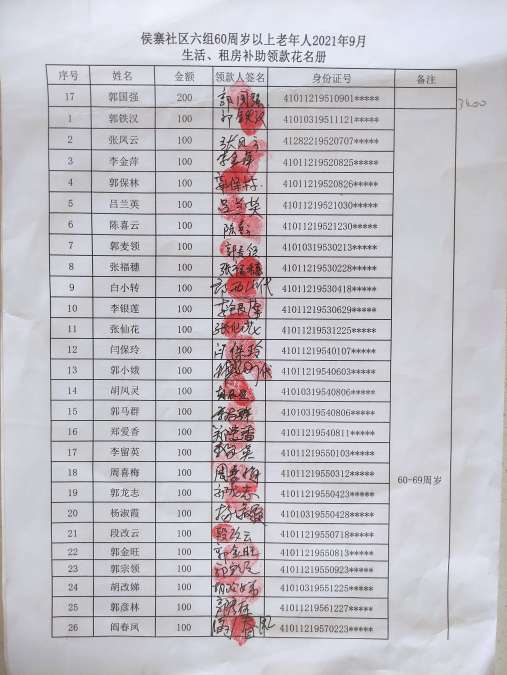 侯寨社区六组60周岁以上老年人2021年9月
生活、租房补助领款花名册
序号 姓名 金额 领款人签名 身份证号 备注
17 郭国强 200 郭国强 41011219510901***** 3400
1 郭铁汉 100 郭铁汉 41010319511121*****
2 张凤云 100 张凤云 41282219520707*****
3 李金萍 100 李金萍 41011219520825*****
4 郭保林 100 郭保林 41011219520826*****
5 吕兰英 100 吕兰英 41011219521030*****
6 陈喜云 100 陈喜云 41011219521230*****
7 郭麦领 100 41010319530213*****
8 张福穗 100 张福穗 41011219530228*****
9 白小转 100 41011219530418*****
10 李银莲 100 李银莲 41011219530629*****
11 张仙花 100 张仙花 41011219531225*****
12 闫保玲 100 闫保玲 41011219540107*****
13 郭小娥 100 41011219540603*****
14 胡凤灵 100 41010319540806*****
15 郭马群 100 41010319540806*****
16 郑爱香 100 郑爱香 41011219540811*****
17 李留英 100 41011219550103*****
18 周喜梅 100 周喜梅 41011219550312***** 60-69周岁
19 郭龙志 100 郭龙志 41011219550423*****
20 杨淑霞 100 41010319550428*****
21 段改云 100 段改云 41011219550718*****
22 郭金旺 100 郭金旺 41011219550813*****
23 郭宗领 100 41011219550923*****
24 胡改娣 100 41010319551225*****
25 郭彦林 100 41011219561227*****
26 阎春凤 100 41011219570223*****